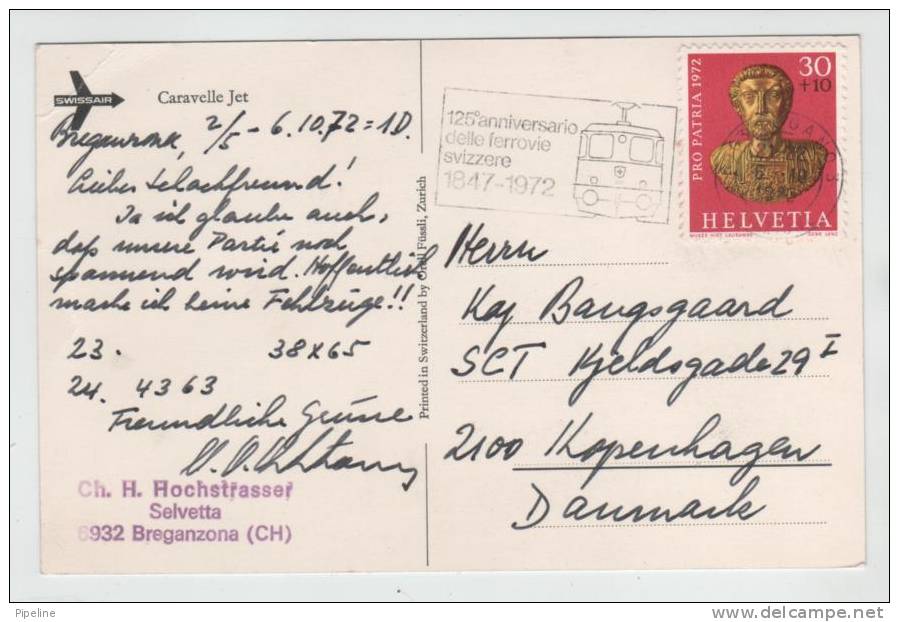 SWISSAIR
Caravelle Jet
Breganzona, 2/5 - 6.10.72 = 1D.
Lieber Schachfreund!
Ja ich glaube auch,
dass unsere Partie noch
spannend wird. Hoffentlich
mache ich keine Fehlzüge!!
23. 38x65
24. 4363
Freundliche Grüsse
Ch. H. Hochstrasser
Selvetta
6932 Breganzona (CH)
Printed in Switzerland by Orell Füssli, Zurich
125° anniversario
delle ferrovie
svizzere
1847-1972
PRO PATRIA 1972
30
+10
HELVETIA
Herrn
Kaj Bangsgaard
SCT Kjeldsgade 29 I
2100 Kopenhagen
Danmark
Pipeline
www.delcampe.net